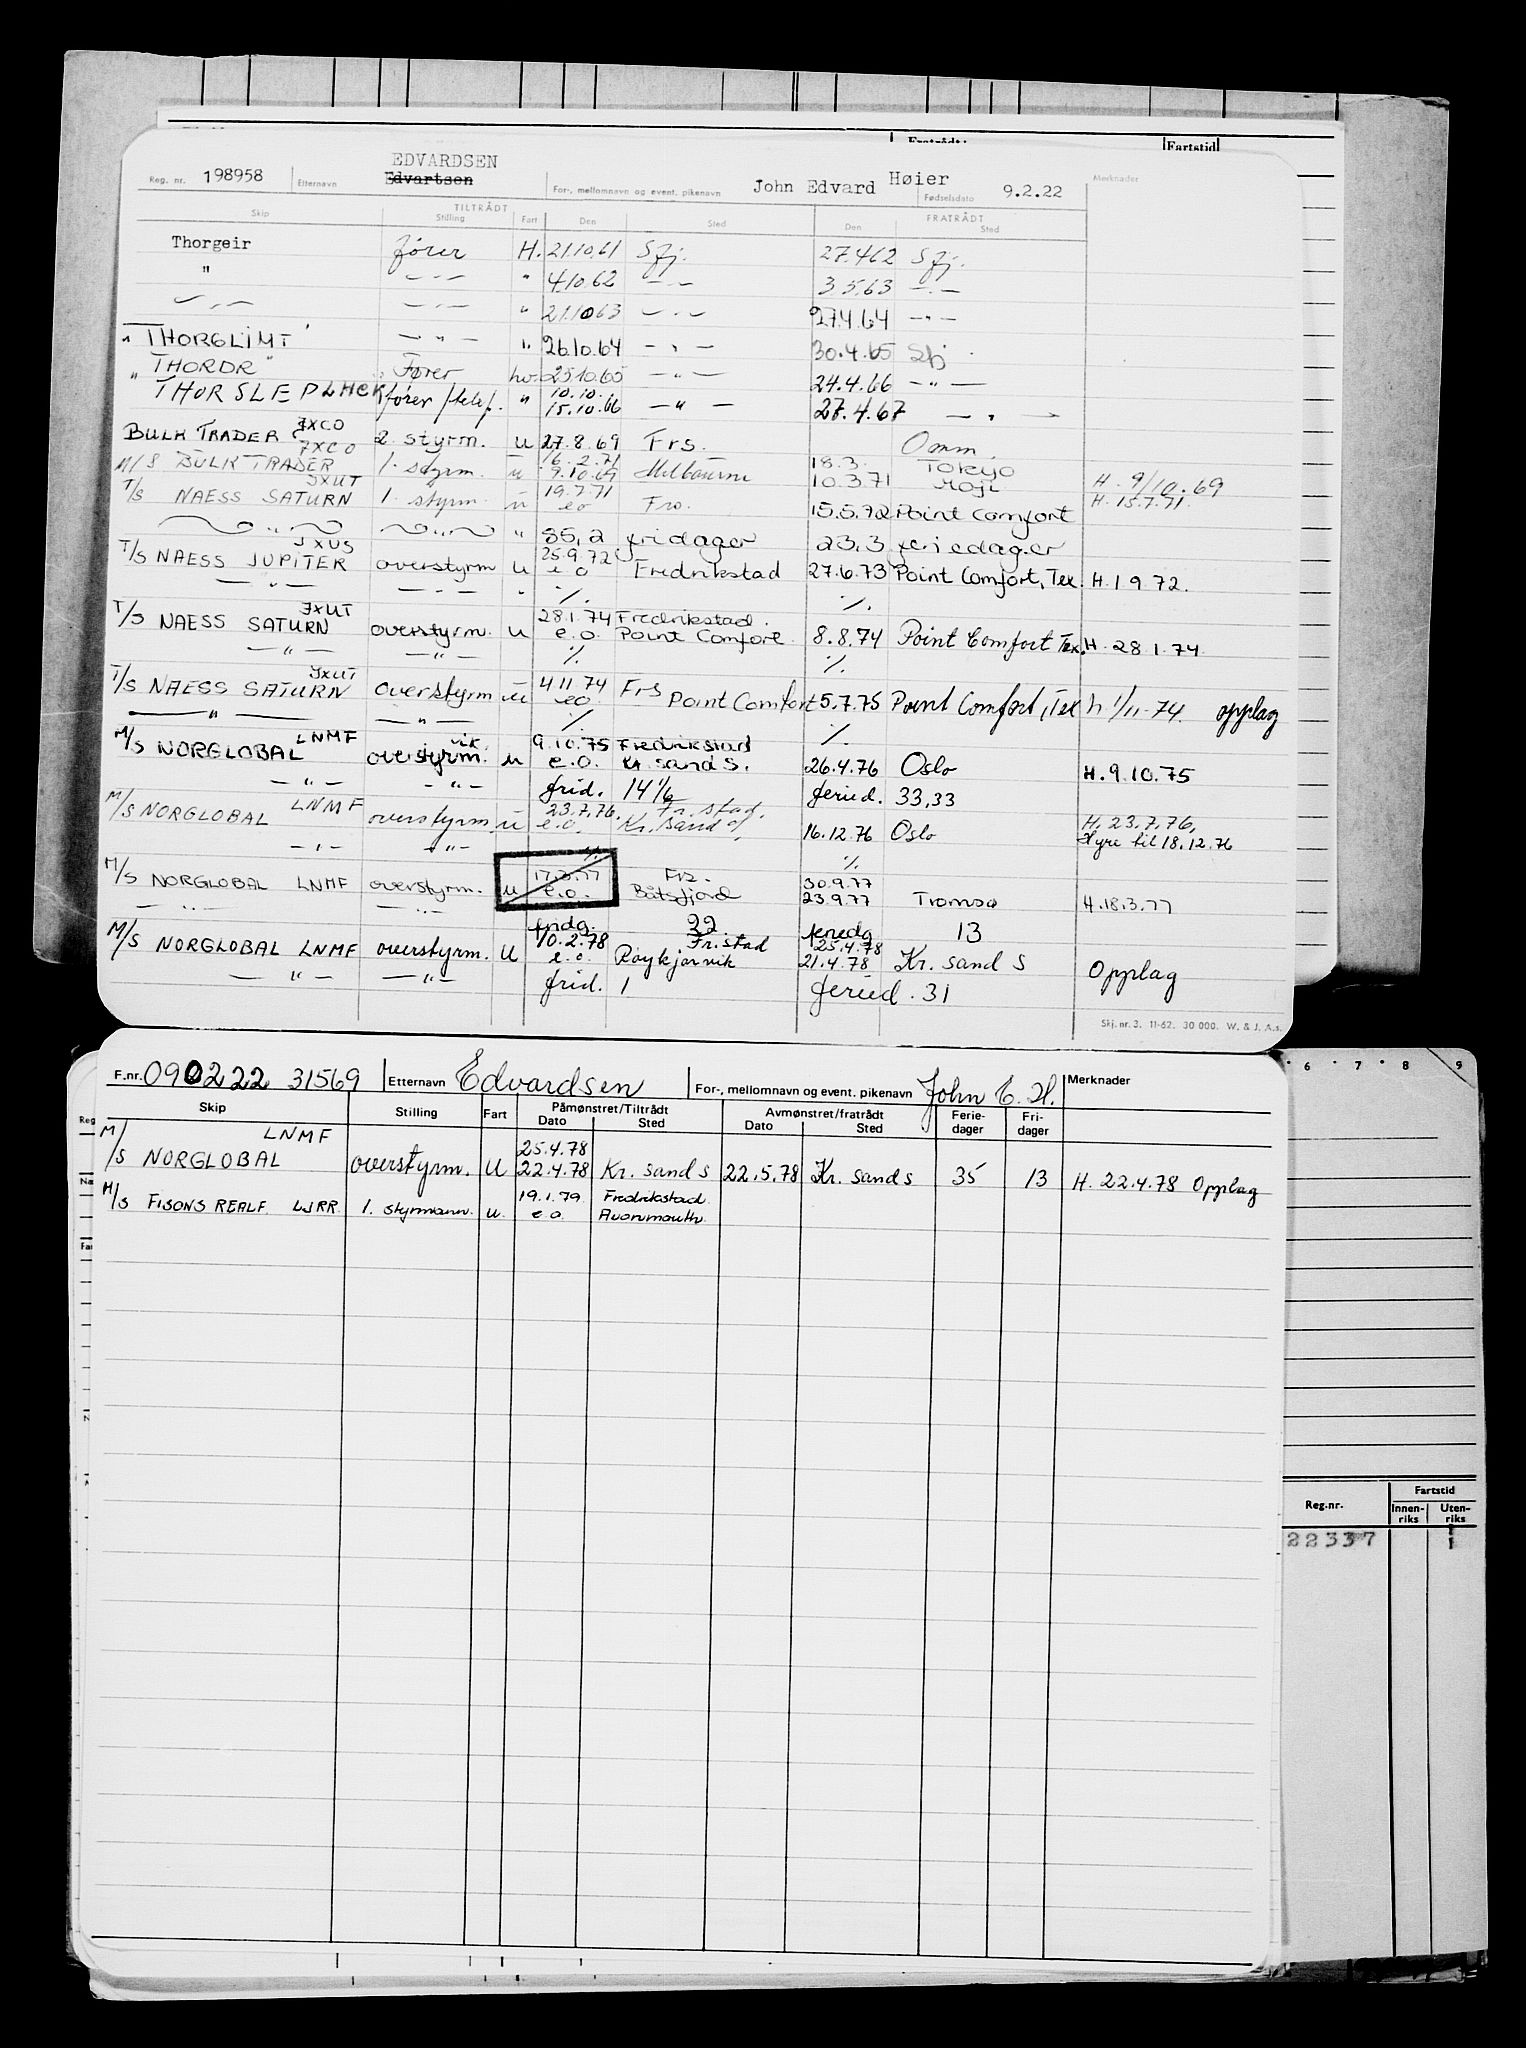 Fratrådt: Fartstid
EDVARDSEN
Reg. nr. 198958 Etternavn Edvartsen For-, mellomnavn og event. pikenavn John Edvard Høier Fødselsdato 9.2.22 Merknader
TILTRÅDT FRATRÅDT
Skip Stilling Fart Den Sted Den Sted
Thorgeir fører H. 21.10.61 Sfj. 27.4.62 Sfj.
" — " — " 4.10.62 — " — 3.5.63 — " —
— " — — " — " 21.10.63 — " — 27.4.64 — " —
"THORGLIMT" — " — " 26.10.64 — " — 30.4.65 Sfj.
"THORDR" Fører hv. 25.10.65 — " — 24.4.66 — " —
10.10.
THORSLEP LHCK fører/telef. " 15.10.66 — " — 27.4.67 — " —
JXCO
BULK TRADER 2. styrm. u 27.8.69 Frs. Omm.
JXCO 16.2.71 18.3. Tokyo
M/S BULK TRADER 1. styrm. u 9.10.69 Melbourne 10.3.71 Moji H. 9/10.69
JXUT 19.7.71 H. 15.7.71.
T/S NAESS SATURN 1. styrm. u eo Fro. 15.5.72 Point Comfort
— " — — " — " 85,2 fridager 23,3 feriedager
JXUS 25.9.72
T/S NAESS JUPITER overstyrm u e o Fredrikstad 27.6.73 Point Comfort, Tex. H. 1.9.72.
— " — — " — " ./. ./.
JXUT 28.1.74 Fredrikstad.
T/S NAESS SATURN overstyrm. u e.o. Point Comfort. 8.8.74 Point Comfort Tex. H. 28.1.74.
— " — — " — ./. ./.
JXUT 4.11.74 Frs
T/S NAESS SATURN overstyrm u eo Point Comfort 5.7.75 Point Comfort, Tex h 1/11-74. opplag
— " — — " — ./. ./.
LNMF vik. 9.10.75 Fredrikstad
M/S NORGLOBAL overstyrm. u e.o. Kr. sand S. 26.4.76 Oslo H. 9.10.75
— " — — " — frid. 14 1/6 feried. 33,33
LNMF 23.7.76. Fr.stad. H. 23.7.76,
M/S NORGLOBAL overstyrm u e.o. Kr. Sand S/ 16.12.76 Oslo Hyre til 18.12.76
— " — — " — ./. ./.
17.3.77 Frs. 30.9.77
M/S NORGLOBAL LNMF overstyrm. u e.o. Båtsfjord 23.9.77 Tromsø H. 18.3.77
— " — — " — fridg. 22 feriedg 13
10.2.78 Fr.stad 25.4.78
M/S NORGLOBAL LNMF overstyrm. u e.o. Røykjarvik 21.4.78 Kr. sand S Opplag
— " — — " — frid. 1 feried. 31
Skj. nr. 3. 11-62. 30 000. W. & J. A.s.
F.nr. 090222 31569 Etternavn Edvardsen For-, mellomnavn og event. pikenavn John E. H. Merknader
Skip Stilling Fart Påmønstret/Tiltrådt Dato Sted Avmønstret/fratrådt Dato Sted Ferie-dager Fri-dager
LNMF 25.4.78
M/S NORGLOBAL overstyrm. u 22.4.78 Kr. sand S 22.5.78 Kr. sand S 35 13 H. 22.4.78 Opplag
19.1.79. Fredrikstad.
M/S FISONS REALF. LJRR. 1. styrmann. u. e.o. Avonmouth.
6 7 8 9
Reg.nr. Fartstid
Innen-riks Uten-riks
22337 1